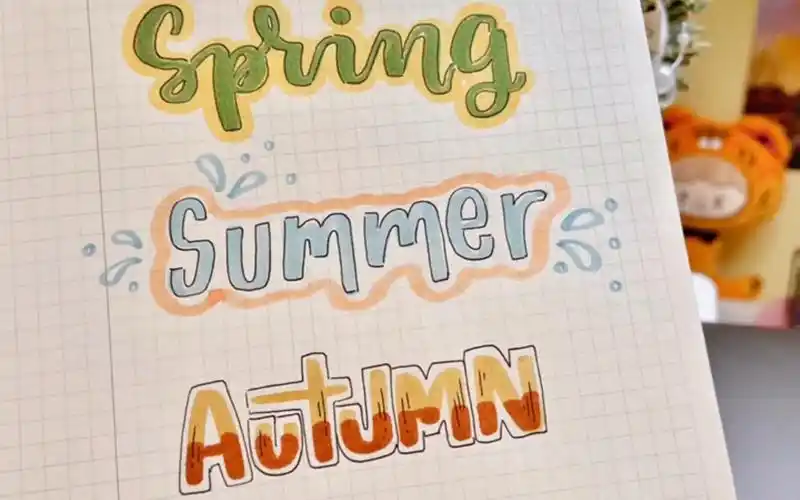 Spring
Summer
AutuMN